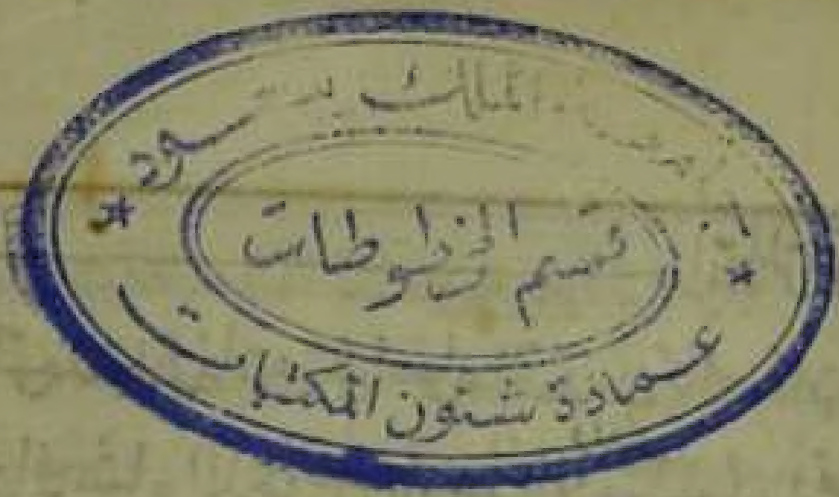 الملك سعود
قسم المخطوطات
عمادة شئون المكتبات